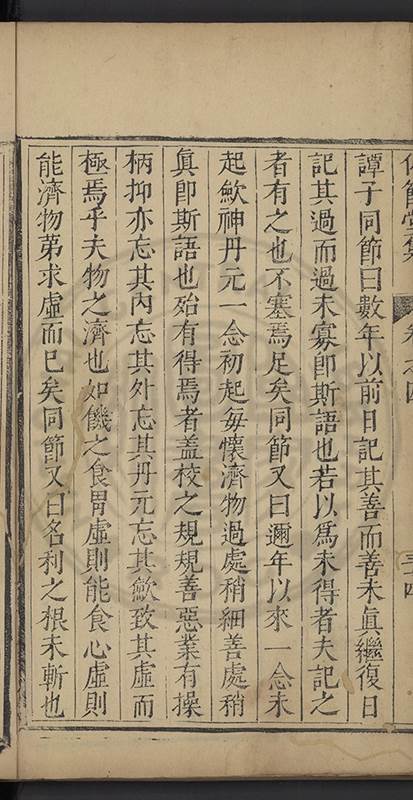 譚子同節曰數年以前日記其善而善未眞繼復日
記其過而過未寡卽斯語也若以爲未得者夫記之
者有之也不塞焉足矣同節又曰邇年以來一念未
起歛神丹元一念初起每懷濟物過處稍細善處稍
眞卽斯語也殆有得焉者盖校之規規善惡業有操
柄抑亦忘其內忘其外忘其丹元忘其歛致其虛而
極焉乎夫物之濟也如饑之食胃虛則能食心虛則
能濟物苐求虛而已矣同節又曰名利之根未斬也